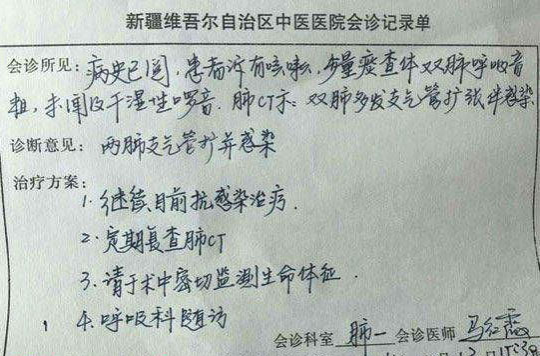 新疆维吾尔自治区中医医院会诊记录单
会诊所见：病史已阅，患者诉有咳嗽，少量痰查体双肺呼吸音
粗，未闻及干湿性啰音.肺CT示：双肺多发支气管扩张伴感染
诊断意见：两肺支气管扩并感染
治疗方案：
1.继续目前抗感染治疗.
2.定期复查肺CT
3.请于术中密切监测生命体征.
4.呼吸科随访
会诊科室 肺一 会诊医师